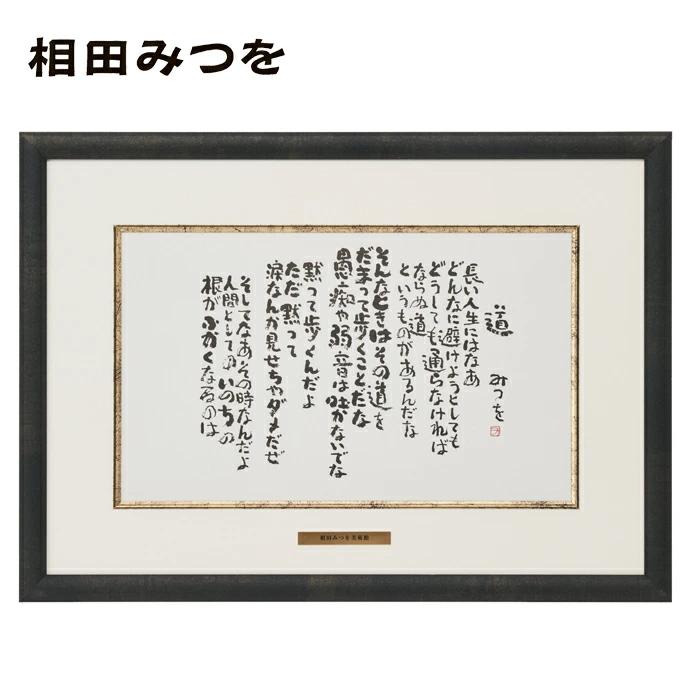 相田みつを
道
みつを
長い人生にはなあ
どんなに避けようとしても
どうしても通らなければ
ならぬ道
というものがあるんだな
そんなときはその道を
だまって歩くことだな
愚痴や弱音は吐かないでな
黙って歩くんだよ
ただ黙って
涙なんか見せちゃダメだぜ
そしてなあその時なんだよ
人間としてのいのちの
根がふかくなるのは
相田みつを美術館